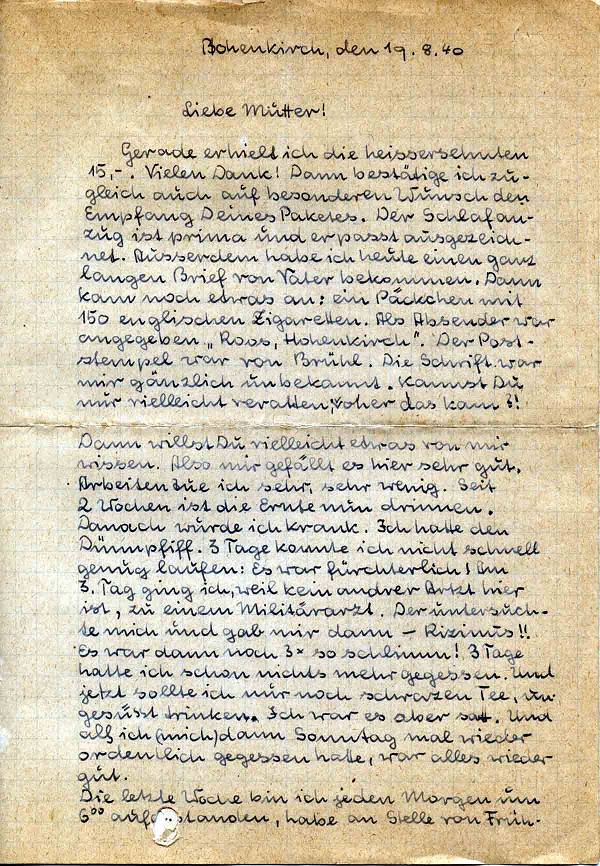 Hohenkirch, den 19.8.40
Liebe Mutter!
Gerade erhielt ich die heissersehnten
15,-. Vielen Dank! Dann bestätige ich zu-
gleich auch auf besonderen Wunsch den
Empfang Deines Paketes. Der Schlafan-
zug ist prima und er passt ausgezeich-
net. Ausserdem habe ich heute einen ganz
langen Brief von Vater bekommen. Dann
kam noch etwas an: ein Päckchen mit
150 englischen Zigaretten. Als Absender war
angegeben „Ross, Hohenkirch". Der Post-
stempel war von Brühl. Die Schrift war
mir gänzlich unbekannt. Kannst Du
mir vielleicht verraten, woher das kam?!
Dann willst Du vielleicht etwas von mir
wissen. Also mir gefällt es hier sehr gut.
Arbeiten tue ich sehr, sehr wenig. Seit
2 Wochen ist die Ernte nun drinnen.
Danach wurde ich krank. Ich hatte den
Dünnpfiff. 3 Tage konnte ich nicht schnell
genug laufen: Es war fürchterlich! Am
3. Tag ging ich, weil kein andrer Artzt hier
ist, zu einem Militärarzt. Der untersuch-
te mich und gab mir dann – Rizinus!!
Es war dann noch 3x so schlimm! 3 Tage
hatte ich schon nichts mehr gegessen. Und
jetzt sollte ich nur noch schwarzen Tee, un-
gesüsst trinken. Ich war es aber satt. Und
als ich (mich) dann Sonntag mal wieder
ordentlich gegessen hatte, war alles wieder
gut.
Die letzte Woche bin ich jeden Morgen um
6⁰⁰ aufgestanden, habe an Stelle von Früh-